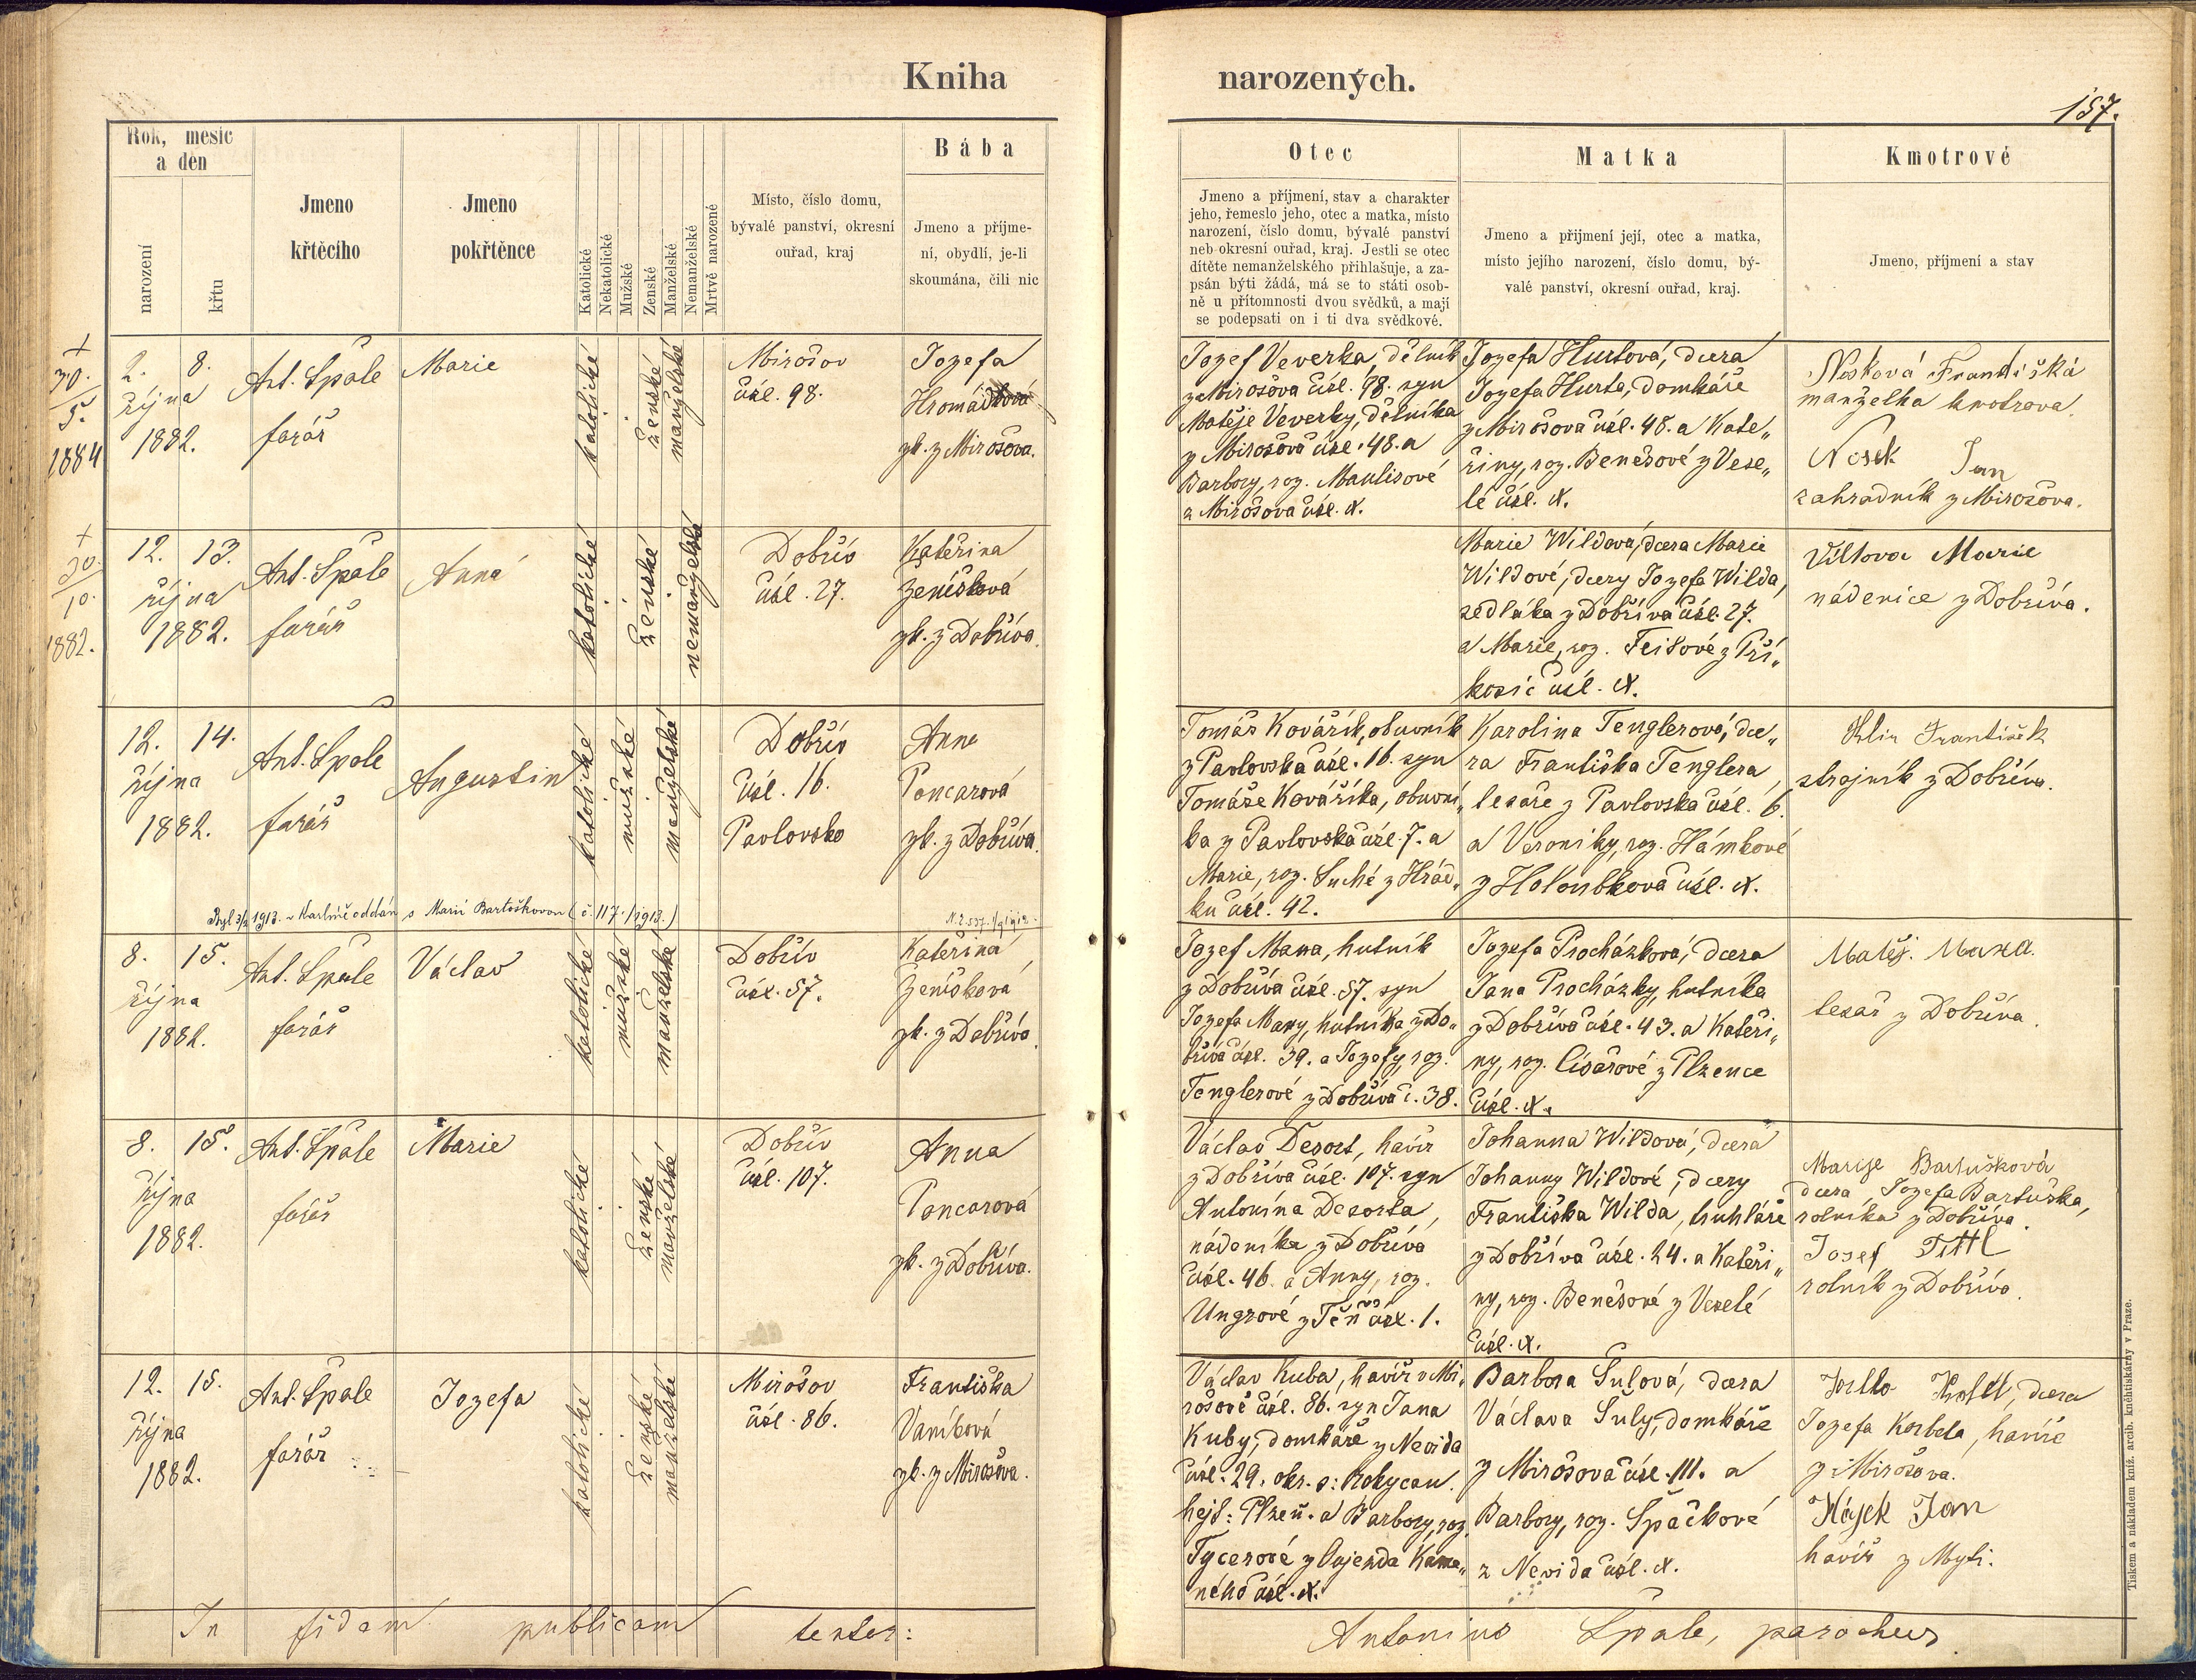 Kniha narozených.
157.
Rok, mesíc a den
narození
křtu
Jmeno křtěcího
Jmeno pokřtěnce
Katolické
Nekatolické
Mužské
Ženské
Manželské
Nemanželské
Mrtvě narozené
Místo, číslo domu,
bývalé panství, okresní
ouřad, kraj
Bába
Jmeno a příjme-
ní, obydlí, je-li
skoumána, čili nic
Otec
Jmeno a příjmení, stav a charakter
jeho, řemeslo jeho, otec a matka, místo
narození, číslo domu, bývalé panství
neb okresní ouřad, kraj. Jestli se otec
dítěte nemanželského přihlašuje, a za-
psán býti žádá, má se to státi osob-
ně u přítomnosti dvou svědků, a mají
se podepsati on i ti dva svědkové.
Matka
Jmeno a přijmení její, otec a matka,
místo jejího narození, číslo domu, bý-
valé panství, okresní ouřad, kraj.
Kmotrové
Jmeno, příjmení a stav
+
30.
5.
1884
2. 8.
října
1882.
Ant. Špale
farář
Marie
katolické
ženské
manželské
Mirošov
čísl. 98.
Jozefa
zk. z Mirošova.
Jozef Veverka, dělník
z Mirošova čísl. 98. syn
Matěje Veverky, dělníka
z Mirošova čísl. 48. a
Barbory, roz. Maulisové
z Mirošova čísl. X.
Jozefa Hurtová, dcera
Jozefa Hurta, domkáře
z Mirošova čísl. 48. a Kate„
řiny, roz. Benešové z Vese„
lé čísl. X.
Nosková Františká
manželka kmotrova.
Nosek Jan
zahradník z Mirošova.
+
20.
10.
1882.
12. 13.
října
1882.
Ant. Špale
farář
Anna
katolické
ženské
nemanželské
Dobřív
čísl. 27.
Kateřina
Ženíšková
zk. z Dobříva.
Marie Wildová, dcera Marie
Wildové, dcery Jozefa Wilda,
sedláka z Dobříva čísl. 27.
a Marie, roz. Feitové z Pří„
kosic čísl. X.
Viltova Marie
nádenice z Dobříva.
12. 14.
října
1882.
Ant. Špale
farář
Augustin
katolické
mužské
manželské
Dobřív
čísl. 16.
Pavlovsko
Anna
Pancarová
zk. z Dobříva.
Tomáš Kovářík, obuvník
z Pavlovska čísl. 16. syn
Tomáše Kováříka, obuvní„
ka z Pavlovska čísl. 7. a
Marie, roz. Suché z Hrád„
ku čísl. 42.
Karolina Tenglerová, dce„
ra Františka Tenglera,
tesaře z Pavlovska čísl. 6.
a Veroniky, roz. Hámkové
z Holoubkova čísl. X.
František
strojník z Dobříva.
Byl 3/2 1913. v Karlíně oddán s Marií Bartoškovou (č. 117./1913.)
8. 15.
října
1882.
Ant. Špale
farář
Václav
katolické
mužské
manželské
Dobřív
čísl. 57.
Kateřina
Ženíšková
zk. z Dobříva.
Jozef Maxa, hutník
z Dobříva čísl. 57. syn
Jozefa Maxy, hutníka z Do„
bříva čísl. 39. a Jozefy, roz.
Tenglerové z Dobříva č. 38.
Jozefa Procházková, dcera
Jana Procházky, hutníka
z Dobříva čísl. 43. a Kateři„
ny, roz. Císařové z Plzence
čísl. X.
Matěj. Maxa.
tesař z Dobříva.
8. 15.
října
1882.
Ant. Špale
farář
Marie
katolické
ženské
manželské
Dobřív
čísl. 107.
Anna
Pancarová
zk. z Dobříva.
Václav Desort, havíř
z Dobříva čísl. 107. syn
Antonína Desorta,
nádeníka z Dobříva
čísl. 46. a Anny, roz.
Ungrové z Těň čísl. 1.
Johanna Wildová, dcera
Johanny Wildové, dcery
Františka Wilda, truhláře
z Dobříva čísl. 24. a Kateři„
ny, roz. Benešové z Veselé
čísl. X.
Marije Bartušková
dcera Jozefa Bartuška,
rolníka z Dobříva.
Josef Tittl
rolník z Dobříva.
12. 15.
října
1882.
Ant. Špale
farář
Jozefa
katolické
ženské
manželské
Mirošov
čísl. 86.
Františka
zk. z Mirošova.
Václav Kuba, havíř v Mi„
rošově čísl. 86. syn Jana
Kuby, domkáře z Nevida
čísl. 29. okr. s: Rokycan.
hejt: Plzeň. a Barbory, roz.
Tycerové z Oujezda Kame„
ného čísl. X.
Barbora Šulová, dcera
Václava Šuly, domkáře
z Mirošova čísl. 111. a
Barbory, roz. Špačkové
z Nevida čísl. X.
dcera
Jozefa Korbela, havíře
z Mirošova.
Hájek Jan
havíř z Myti.
In fidem publicam testor:
Antonius Špale, parochus
Tiskem a nákladem kníž. arcib. knihtiskárny v Praze.